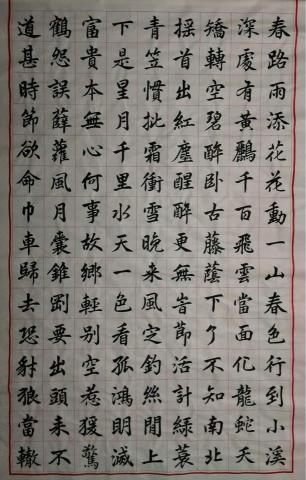 春路雨添花花動一山春色行到小溪
深處有黃鸝千百飛雲當面化龍蛇夭
矯轉空碧醉卧古藤蔭下了不知南北
揺首出紅塵醒醉更無旹節活計綠蓑
青笠慣批霜衝雪晚来風定釣絲閒上
下是星月千里水天一色看孤鴻明滅
富貴本無心何事故鄉輕別空惹猨驚
鶴怨誤薜蘿風月囊錐剛要出頭来不
道甚時節欲命巾車歸去恐豺狼當轍